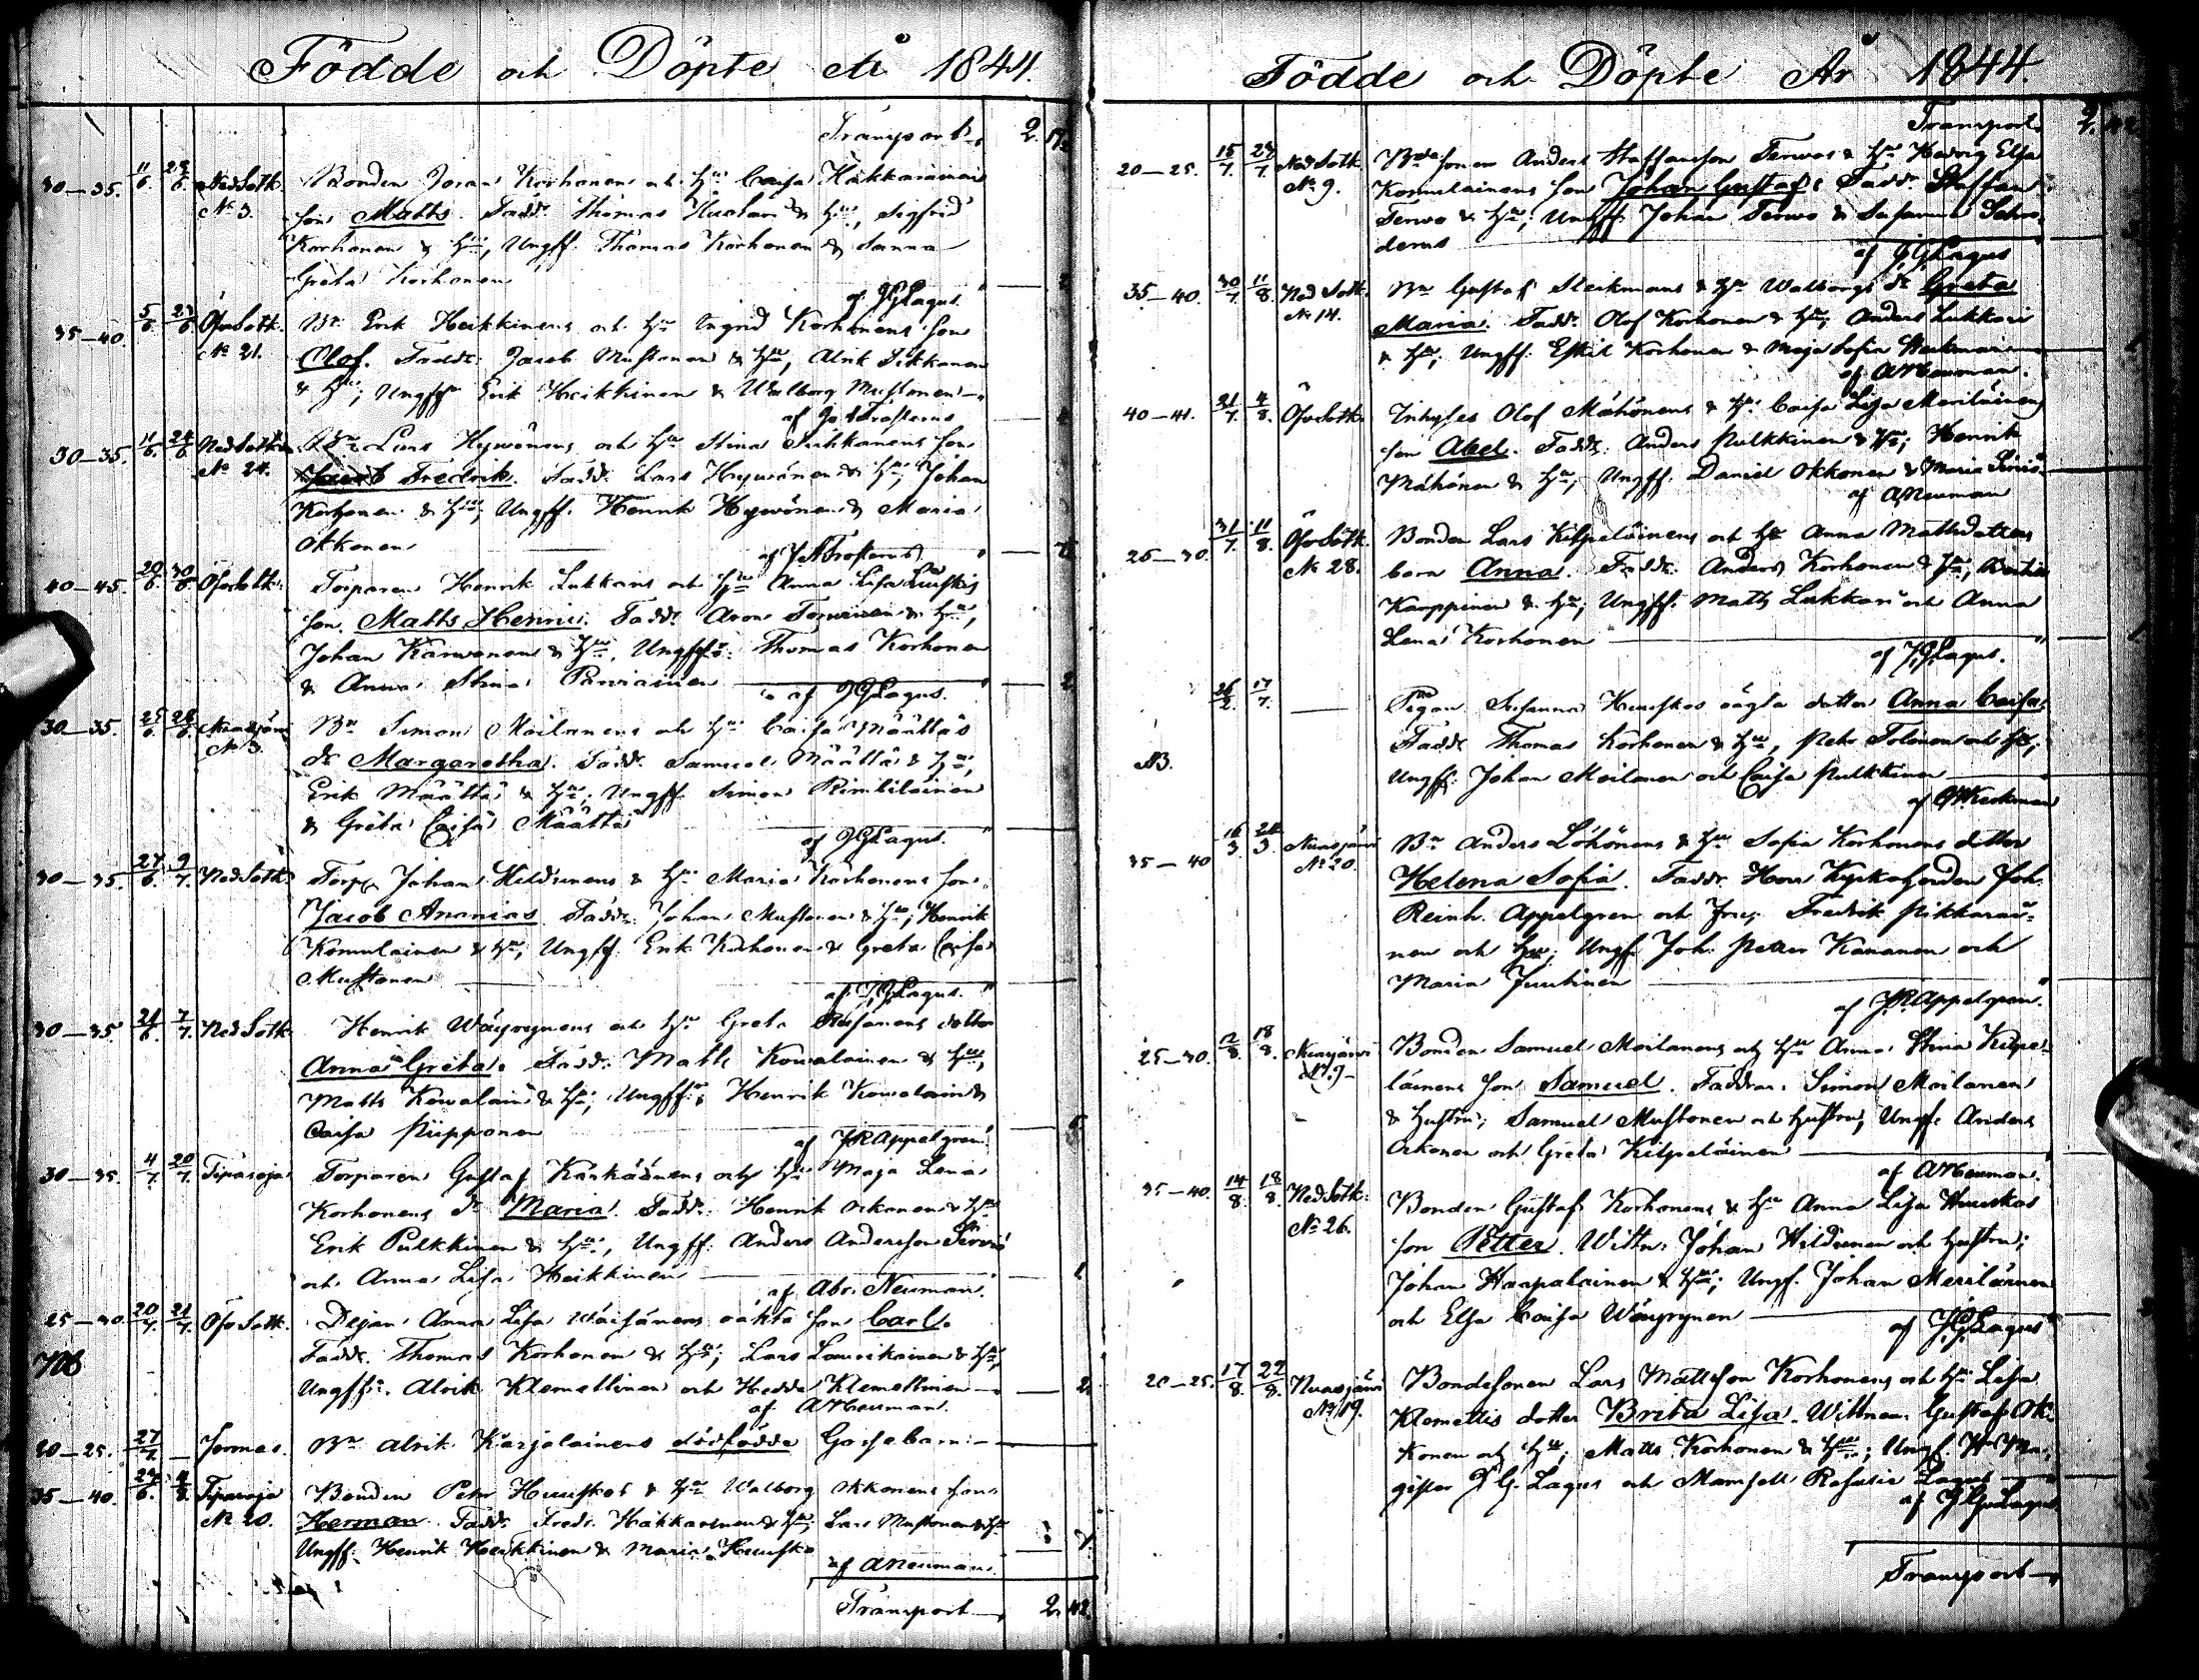 Födde och Döpte År 1844.
Transport 2
30—35. 11/6. 23/6. Ned Sotk. Bonden Johan Korhonens och Hu Caisa Hakkarainens
No 3. son Matts. Fadd. Thomas & Hu, Sigfrid
Korhonen & Hu, Ungff. Thomas Korhonen & Sanna
Greta Korhonen
af JGLagus.
35—40. 5/6. 23/6. Öfv Sotk. Bn Erik Heikkinens och Hu Ingrid Korhonens son
No 21. Olof. Fadd: Jacob Mustonen & Hu, Alrik Sikkanen
& Hu; Ungff Erik Heikkinen & Walborg Mustonen
af
30—35. 11/6. 24/6. Ned Sotk. Bn Lars Hyvönens och Hu Stina Sikkanens son
No 24. Jacob Fredrik. Fadd. Lars Hyvönen & Hu; Johan
Korhonen & Hu; Ungff. Henrik Hyvönen & Maria
Okkonen
af
40—45. 20/6. 30/6. Öfv Sotk. Torparen Henrik Lukkaris och Hu Anna Lisa Huuskos
son. Matts Henric. Fadd. Aron Terwonen & Hu,
Johan Karwonen & Hu. Ungff: Thomas Korhonen
& Anna Stina Parviainen
af JGLagus.
30—35. 25/6. 28/6. Nuasjärvi Bn Simon Moilanens och Hu Caisa Määttäs
No 3. dr Margaretha. Fadd. Samuel Määttä & Hu;
Erik Määttä & Hu; Ungff Simon Rimbiläinen
& Greta Caisa Määttä
af JGLagus.
30—35. 27/6. 9/7. Ned Sotk. Torp. Johan Heldunens & Hu Maria Korhonens son
Jacob Ananias. Fadd: Johan Mustonen & Hu; Henrik
Komulainen & Hu; Ungff. Erik Korhonen & Greta Caisa
Mustonen
af JGLagus.
30—35. 24/6. 7/7. Ned Sotk Henrik Wäyrynens och Hu Greta dotter
Anna Greta. Fadd: Matts Kowalainen & Hu;
Matts Kowalain & Hu; Ungff: Henrik Kowalain &
Caisa Piipponen
af JRAppelgren.
30—35. 4/7. 20/7. Tipasoja Torparen Gustaf Kärkäinens och Hu Maja Lena
Korhonens dr Maria. Fadd: Henrik Okkonen & Hu
Erik Pulkkinen & Hu, Ungff. Anders Andersson
och Anna Lisa Heikkinen
af Abr. Neuman.
25—30. 20/7. 21/7. Öfv Sotk. Pigan Anna Lisa Wäisänens oäkta son Carl.
Fadd. Thomas Korhonen & Hu; Lars Laurikainen & Hu,
Ungff: Alrik Klemettinen och Hedda Klemettinen
af ANeuman.
20—25. 27/7. — Jormas. Bn Alrik Karjalainens dödfödde Gossebarn
35—40. Tipasoja Bonden Petr Huuskos & Hu Walborg Okkonens son
No 20. Herman. Fadd. Fredr. Hakkarainen & Hu; Lars Mustonen & Hu
Ungff: Henrik Heikkinen & Maria Huusko
af ANeuman.
Transport 2 42.
Födde och Döpte År 1844.
Transport 2
20—25. 15/7. 23/7. Ned Sotk. Bondesonen Anders Staffansson Terwos & Hu Hedvig Elsa
No 9. Komulainens son Johan Gustaf. Fadd. Staffan
Terwo & Hu; Ungff. Johan Terwo & Susanna Schro-
derus
af JGLagus
35—40. 30/7. 11/8. Ned Sotk. Bn Gustaf Steckmans & Hu Walborgs dr Greta
No 14. Maria. Fadd. Olof Korhonen & Hu; Anders Lukkari
& Hu; Ungff. Eskil Korhonen & Maja Sofia Steckman
af ANeuman.
40—41. 21/7. 4/8. Öfv Sotk. Inhyses Olof Mähönens & Hu Caisa Lisa Meriläinens
son Abel. Fadd: Anders Pulkkinen & Hu; Henrik
Mähönen & Hu; Ungff. Daniel Okkonen & Maria
af ANeuman
25—30. 31/7. 11/8. Öfv Sotk. Bonden Lars Kilpeläinens och Hu Anna Mattsdotters
No 28. barn Anna. Fadd: Anders Korhonen & Hu;
Karppinen & Hu; Ungff. Matts Lukkari och Anna
Lena Korhonen
af JGLagus.
17/7. — Pigan Susanna Huuskos oägta dotter Anna Caisa.
NB. Fadd: Thomas Korhonen & Hu, Petr Tolonen och Hu;
Ungff. Johan Moilanen och Caisa Pulkkinen
af
35—40 16/3. 24/3. Nuasjärvi Bn Anders Löhönens & Hu Sofia Korhonens dotter
No 20. Helena Sofia. Fadd. Herr Kyrkoherden Joh.
Reinh. Appelgren och Fru; Fredrik Pikkarai-
nen och Hu; Ungf. Joh. Petter Kananen och
Maria Juutinen
af JRAppelgren.
25—30. 12/8. 18/8. Nuasjärvi Bonden Samuel Moilanens och Hu Anna Stina Kilpe-
No 9 läinens son Samuel. Faddrar: Simon Moilanen
& hustru; Samuel Mustonen och hustru; Ungf. Anders
Okkonen och Greta Kilpeläinen
af ANeuman.
35—40. 14/8. 18/8. Ned Sotk: Bonden Gustaf Korhonens & Hu Anna Lisa Huuskos
No 26. son Petter. Wittn: Johan Heldunen och hustru;
Johan Haapalainen & Hu; Ungf. Johan Meriläinen
och Elsa Caisa Wäyrynen
af JGLagus
20—25. 17/8. 22/8. Nuasjärvi Bondesonen Lars Mattsson Korhonens och Hu Lisa
No 19. Klemettis dotter Brita Lisa. Wittnen: Gustaf Ok-
konen och Hu; Matts Korhonen & Hu; Ungf. Hr Ma-
gister J G. Lagus och Mamsell Rosalie Lagus
af JGLagus
Transport